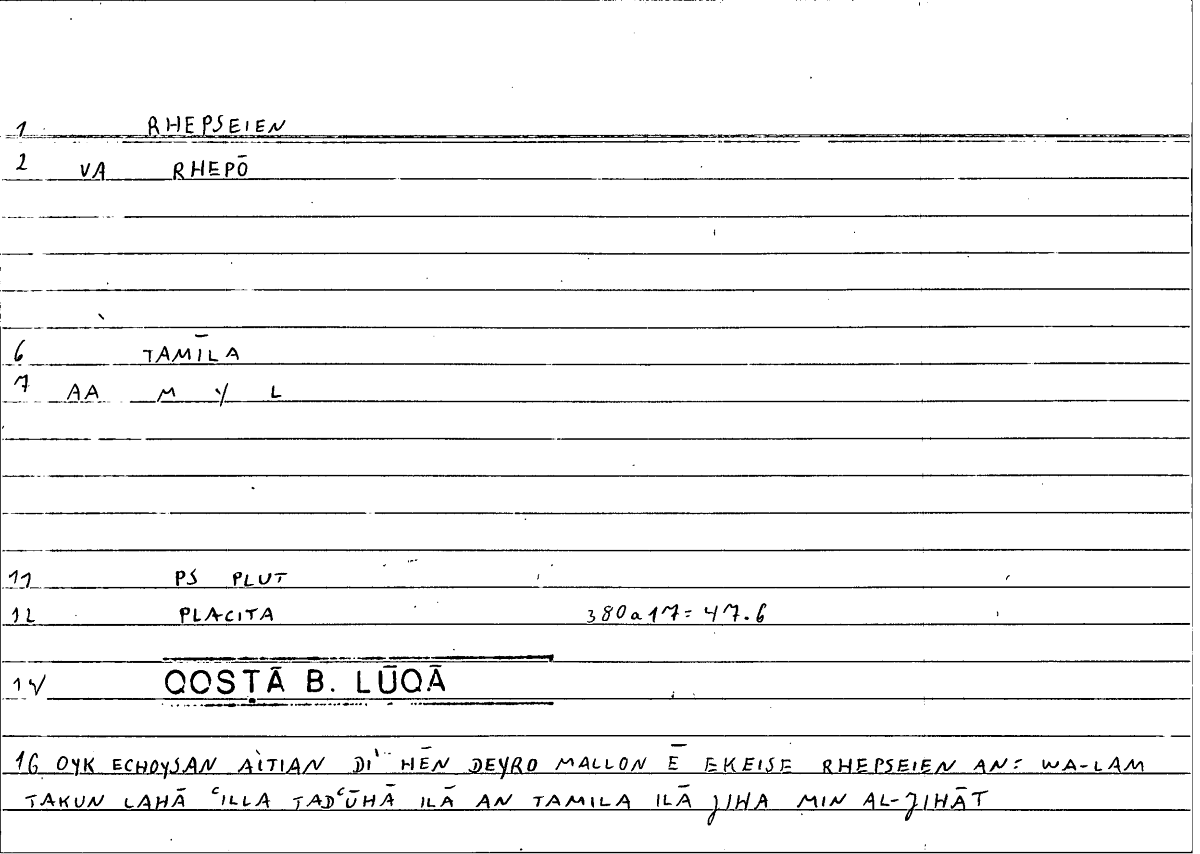 1 RHEPSEIEN
2 VA RHEPŌ
6 TAMĪLA
7 AA M Y L
11 PS PLUT
12 PLACITA 380a17=47.6
14 QOSṬĀ B. LŪQĀ
16 OYK ECHOYSAN AÌTIAN DI' HĒN DEYRO MALLON Ē EKEISE RHEPSEIEN AN: WA-LAM
TAKUN LAHĀ ʿILLA TADʿŪHĀ ILĀ AN TAMILA ILĀ JIHA MIN AL-JIHĀT